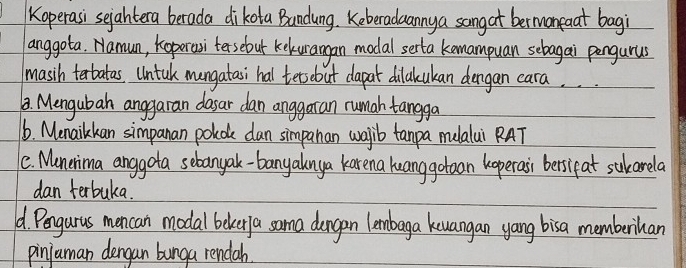 Koperasi sejahtera berada di kota Bandung. Keberadaannya sangat bermanfaat bagi
anggota. Namun, koperasi tersebut kekurangan modal serta kemampuan sebagai pengurus
masih terbatas. Untuk mengatasi hal tersebut dapat dilakukan dengan cara ....
a. Mengubah anggaran dasar dan anggaran rumah tangga
b. Menaikkan simpanan pokok dan simpanan wajib tanpa melalui RAT
c. Menerima anggota sebanyak-banyaknya karena keanggotaan koperasi bersifat sukarela
dan terbuka.
d. Pengurus mencari modal bekerja sama dengan lembaga keuangan yang bisa memberikan
pinjaman dengan bunga rendah.